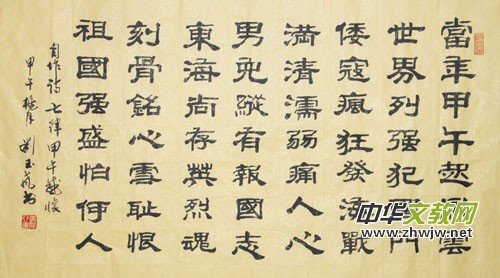 當年甲午起風雲
世界列强犯門
倭寇瘋狂發海戰
滿清濡弱痛人心
男兒縱有報國志
東海尚存英烈魂
刻骨銘心雪耻恨
祖國强盛怕何人
自作詩七律甲午感懷
甲午月劉玉書
中华文教网
www.zhwjw.net